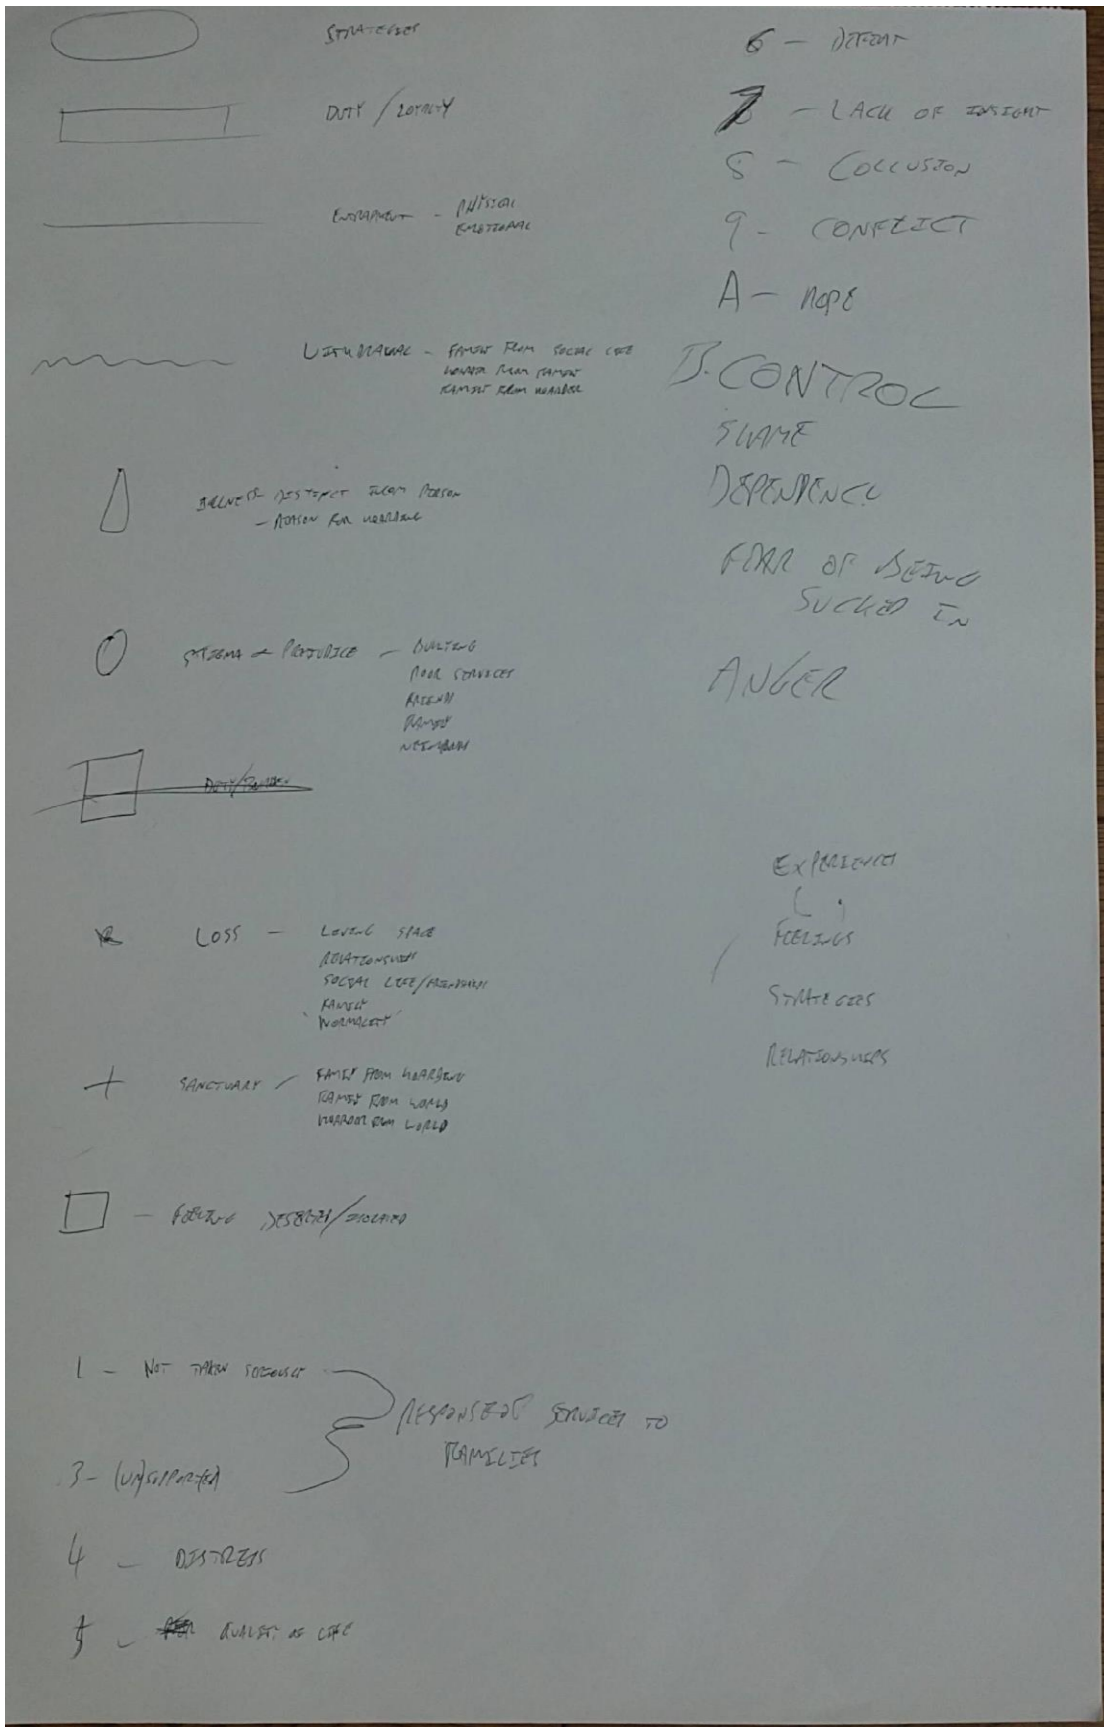 STRATEGIES
DUTY / LOYALTY
ENTRAPMENT - PHYSICAL
EMOTIONAL
WITHDRAWAL - FAMILY FROM SOCIAL LIFE
HOARDER FROM FAMILY
FAMILY FROM HOARDER
ILLNESS - DISTINCT FROM PERSON
- REASON FOR HOARDING
STIGMA + PREJUDICE -
POOR SERVICES
FRIENDS
FAMILY
NEIGHBOURS
DUTY/BURDEN
LOSS - LIVING SPACE
RELATIONSHIPS
SOCIAL LIFE/FRIENDSHIPS
FAMILY
'NORMALITY'
+ SANCTUARY - FAMILY FROM HOARDING
FAMILY FROM WORLD
HOARDER FROM WORLD
- FEELING DESERTED/ISOLATED
1 - NOT TAKEN SERIOUSLY
RESPONSE OF SERVICES TO
FAMILIES
3 - (UN)SUPPORTED
4 - DISTRESS
5 - QUALITY OF LIFE
6 - DEFEAT
7 - LACK OF INSIGHT
8 - COLLUSION
9 - CONFLICT
A - HOPE
B. CONTROL
SHAME
DEPENDENCY
FEAR OF BEING
SUCKED IN
ANGER
EXPERIENCES
FEELINGS
STRATEGIES
RELATIONSHIPS